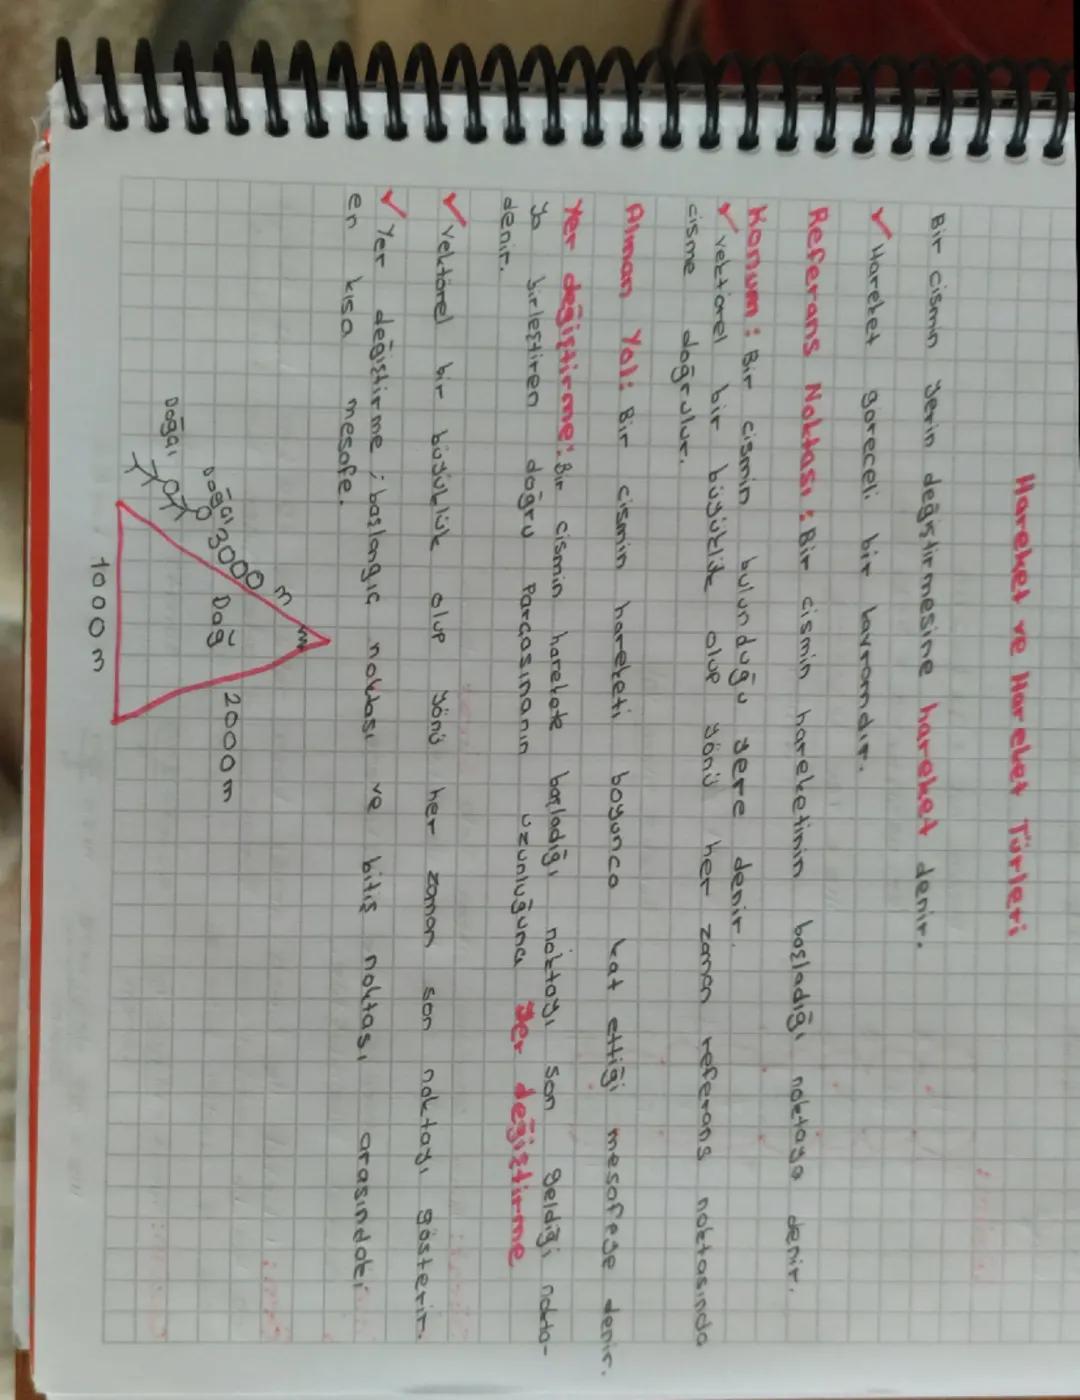 Hareket ve Hareket Türleri
Bir cismin yerin değiştirmesine hareket denir.
✓ Hareket göreceli bir kavramdır.
Referans Noktası : Bir cismin hareketinin başladığı noktaya denir.
Konum : Bir cismin bulunduğu yere denir.
✓ vektörel bir büyüklük olup yönü her zaman referans noktasında
cisme doğrulur.
Alınan Yol : Bir cismin hareketi boyunca kat ettiği mesafeye denir.
Yer değiştirme : Bir cismin harekete başladığı noktayı son geldiği nokta-
ya birleştiren doğru parçasınının uzunluğuna yer değiştirme
denir.
✓ Vektörel bir büyüklük olup yönü her zaman son noktayı gösterir.
✓ Yer değiştirme ; başlangıç noktası ve bitiş noktası arasındaki
en kısa mesafe.
Dağcı
Dağcı
3000 m
Dağ
2000 m
1000 m